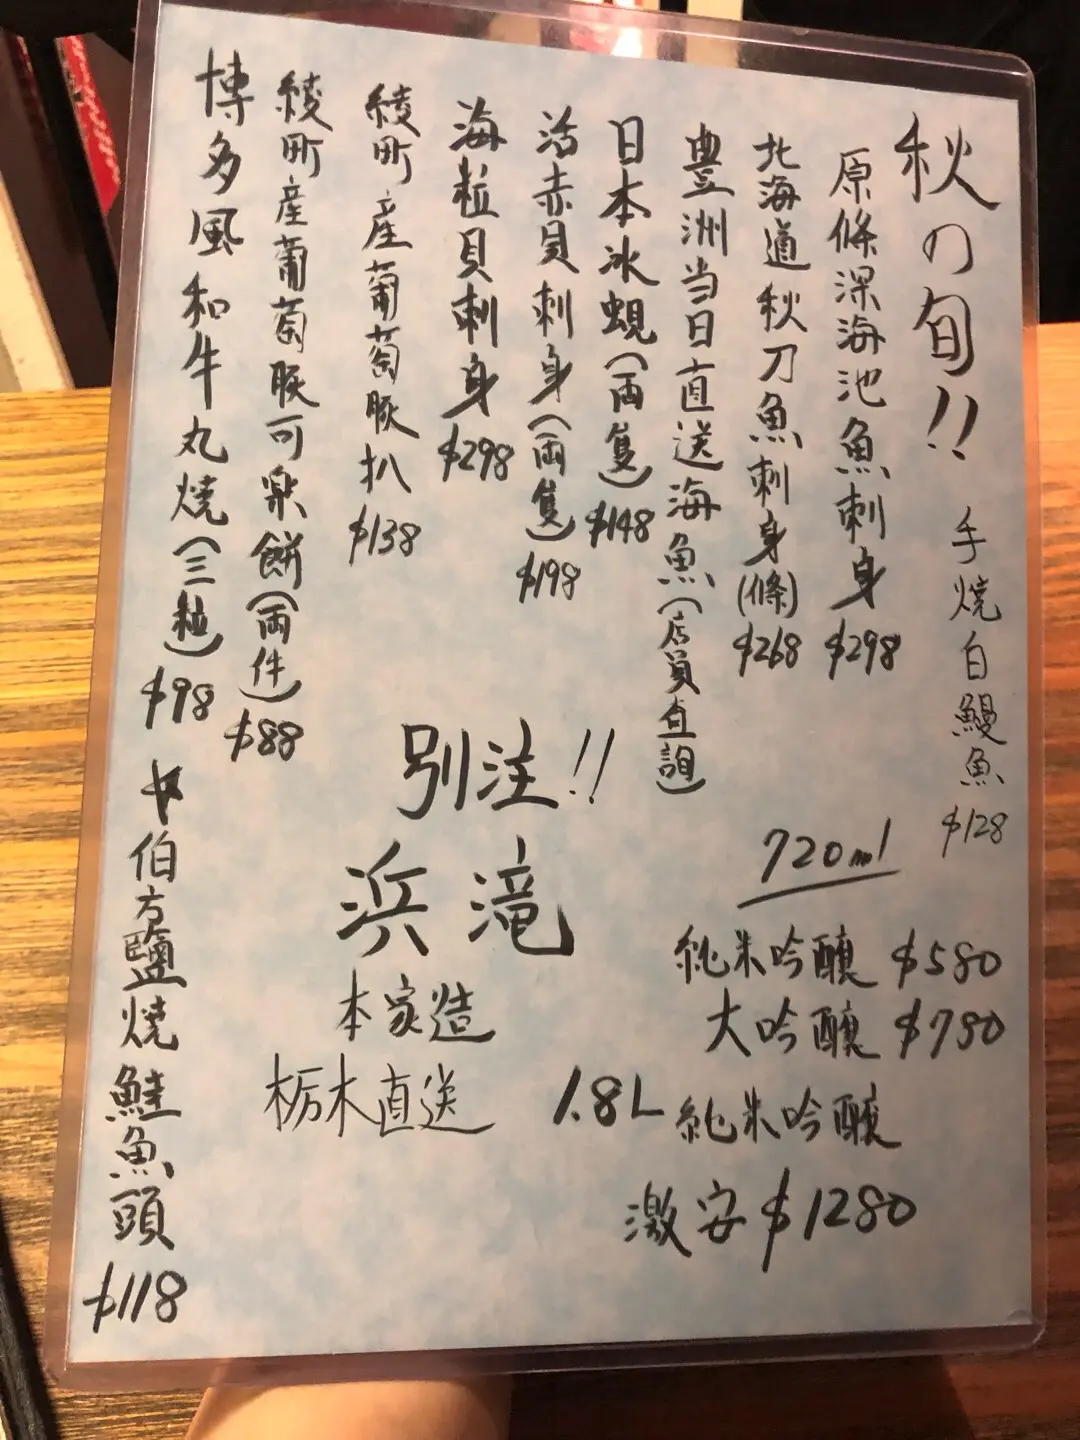 秋の旬!!
手燒白鰻魚 $128
原條深海池魚刺身 $298
北海道秋刀魚刺身(條) $268
豊洲当日直送海魚(店員查詢)
日本冰蜆(両隻) $148
活赤貝刺身(両隻) $198
海粒貝刺身 $298
綾町産葡萄豚扒 $138
綾町産葡萄豚可楽餅(両件) $88
博多風和牛丸燒(三粒) $98
伯方鹽燒鮭魚頭 $118
別注!!
浜滝
本家造
栃木直送
720ml
純米吟釀 $580
大吟釀 $780
1.8L 純米吟釀
激安 $1280